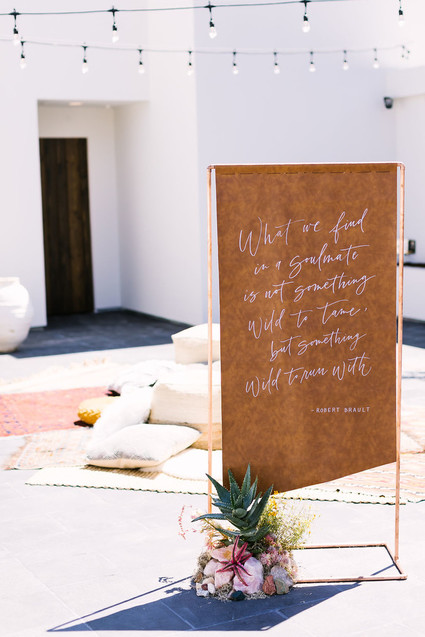 What we find
in a soulmate
is not something
wild to tame,
but something
wild to run with.
- ROBERT BRAULT